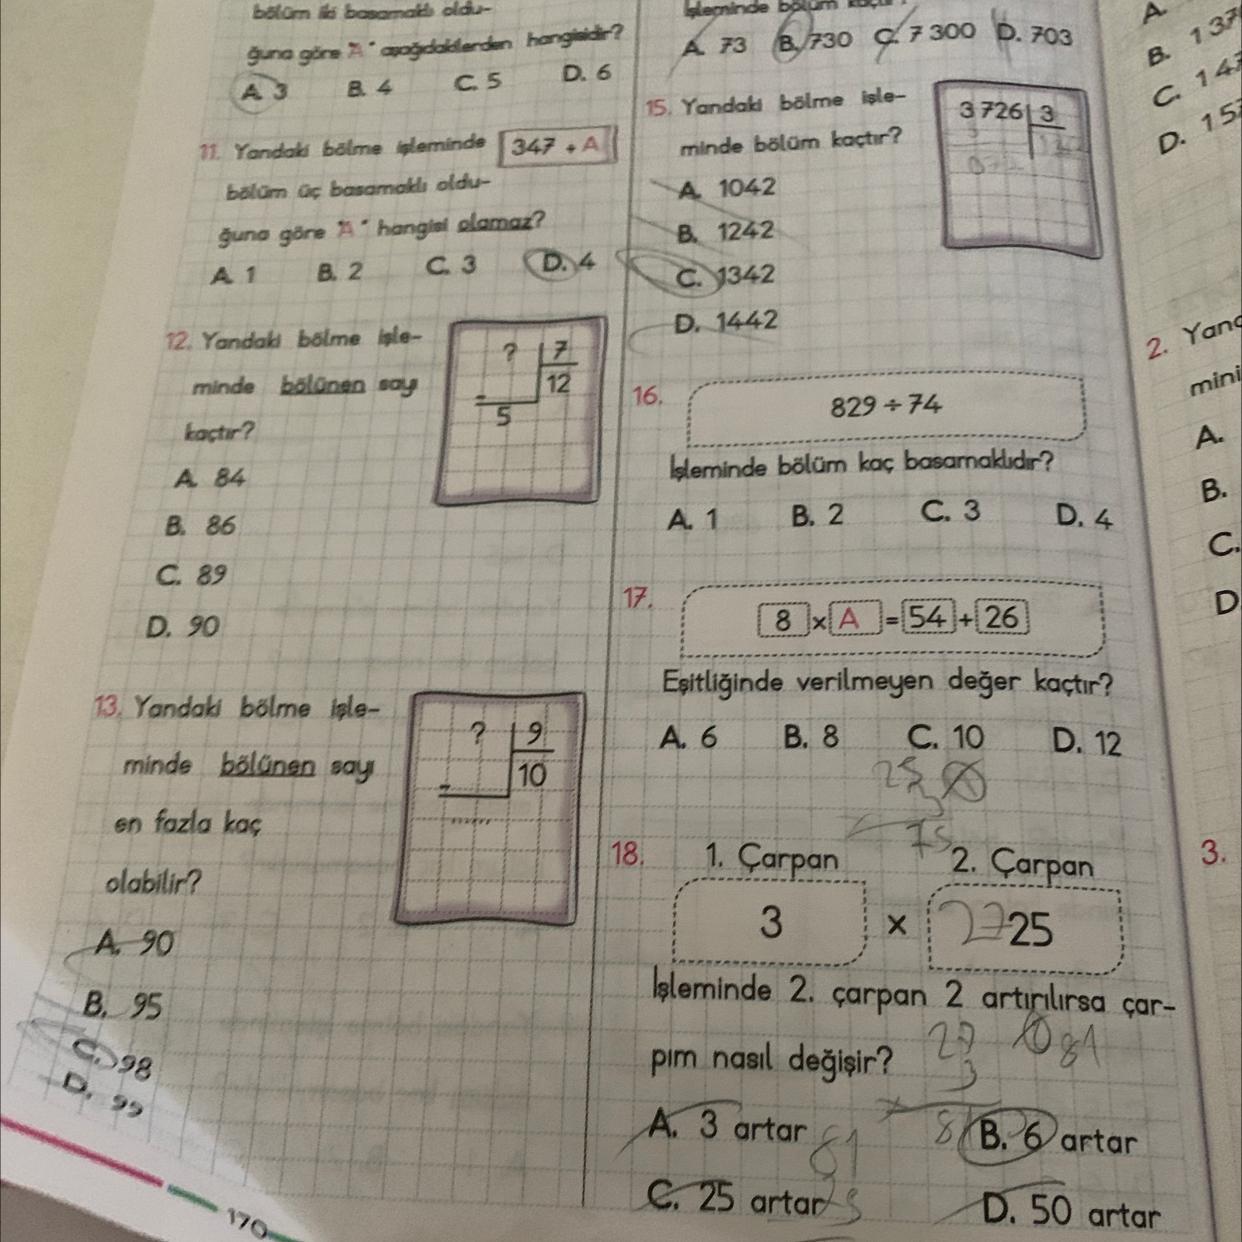 bölüm iki basamaklı oldu-
ğuna göre "A" aşağıdakilerden hangisidir?
A. 3 B. 4 C. 5 D. 6
11. Yandaki bölme işleminde 347 ÷ A
bölüm üç basamaklı oldu-
ğuna göre "A" hangisi olamaz?
A. 1 B. 2 C. 3 D. 4
12. Yandaki bölme işle-
minde bölünen sayı
kaçtır?
? 7
12
-
5
A. 84
B. 86
C. 89
D. 90
13. Yandaki bölme işle-
minde bölünen sayı
en fazla kaç
olabilir?
? 9
10
-
......
A. 90
B. 95
C. 98
D. 99
170
İşleminde bölüm kaçtır?
A. 73 B. 730 C. 7 300 D. 703
15. Yandaki bölme işle-
minde bölüm kaçtır?
3 726 3
A. 1042
B. 1242
C. 1342
D. 1442
16.
829 ÷ 74
İşleminde bölüm kaç basamaklıdır?
A. 1 B. 2 C. 3 D. 4
17.
8 x A = 54 + 26
Eşitliğinde verilmeyen değer kaçtır?
A. 6 B. 8 C. 10 D. 12
25
75
18. 1. Çarpan 2. Çarpan
3 x 27 25
İşleminde 2. çarpan 2 artırılırsa çar-
pım nasıl değişir?
27 81
3
A. 3 artar 81 B. 6 artar
C. 25 artar D. 50 artar
A.
B. 137
C. 147
D. 157
2. Yand
mini
A.
B.
C.
D
3.